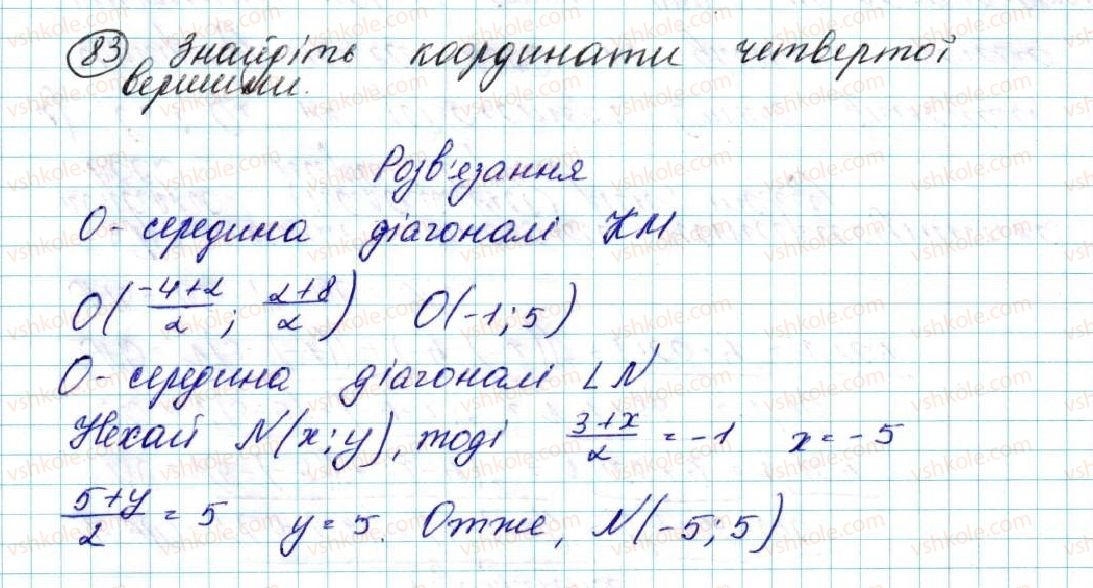 83 Знайдіть координати четвертої
вершини.
Розв'язання
О - середина діагоналі KM
O(-4+2/2; 2+8/2) O(-1; 5)
О - середина діагоналі LN
Нехай N(x; y), тоді 3+x/2 = -1 x = -5
5+y/2 = 5 y = 5. Отже, N(-5; 5)